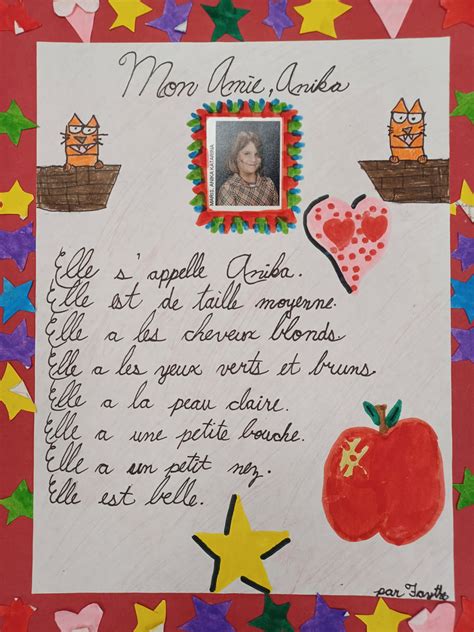 Mon Amie, Anika
MARSS, ANIKA KATARINA
Elle s'appelle Anika.
Elle est de taille moyenne.
Elle a les cheveux blonds
Elle a les yeux verts et bruns.
Elle a la peau claire.
Elle a une petite bouche.
Elle a un petit nez.
Elle est belle.
par